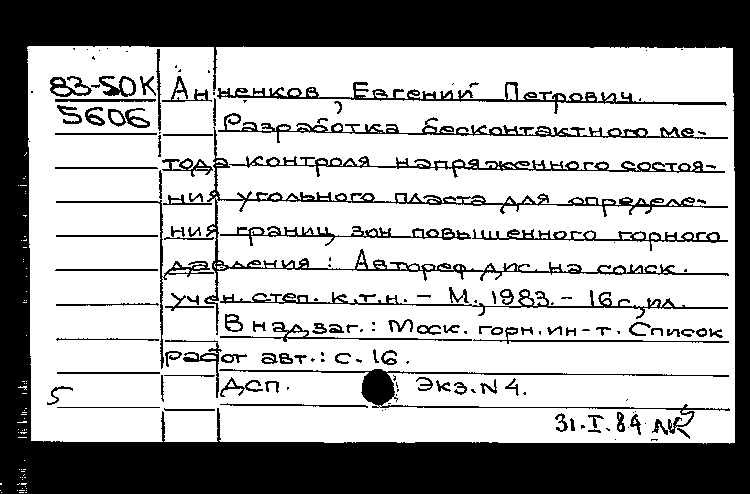 83-50К Анненков, Евгений Петрович.
5606 Разработка бесконтактного ме-
тода контроля напряженного состоя-
ния угольного пласта для определе-
ния границ зон повышенного горного
давления : Автореф. дис. на соиск.
учен. степ. к.т.н. - М., 1983. - 16 с., ил.
В надзаг.: Моск. горн. ин-т. Список
работ авт.: с. 16.
ДСП. Экз. N 4.
5
31.I.84